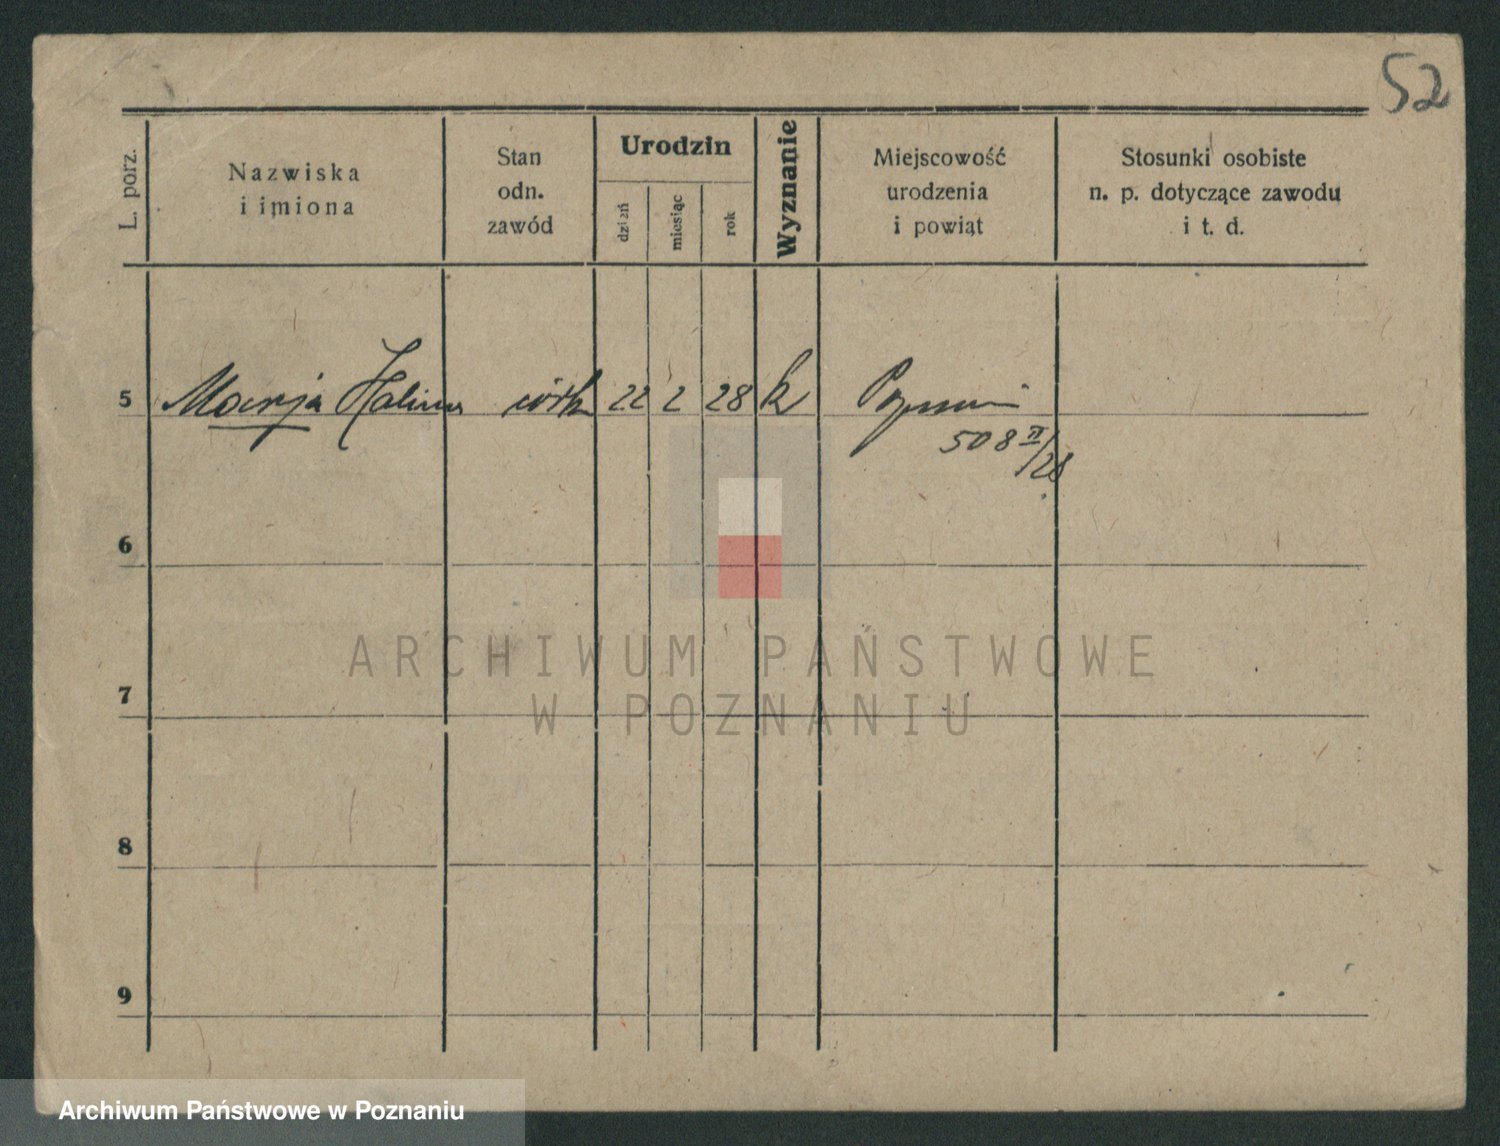 52
L. porz.
Nazwiska
i imiona
Stan
odn.
zawód
Urodzin
dzień
miesiąc
rok
Wyznanie
Miejscowość
urodzenia
i powiąt
Stosunki osobiste
n. p. dotyczące zawodu
i t. d.
5 Marja Halina córka 22 2 28 k Poznań
508 II/28
6
7
8
9
ARCHIWUM PAŃSTWOWE
W POZNANIU
Archiwum Państwowe w Poznaniu